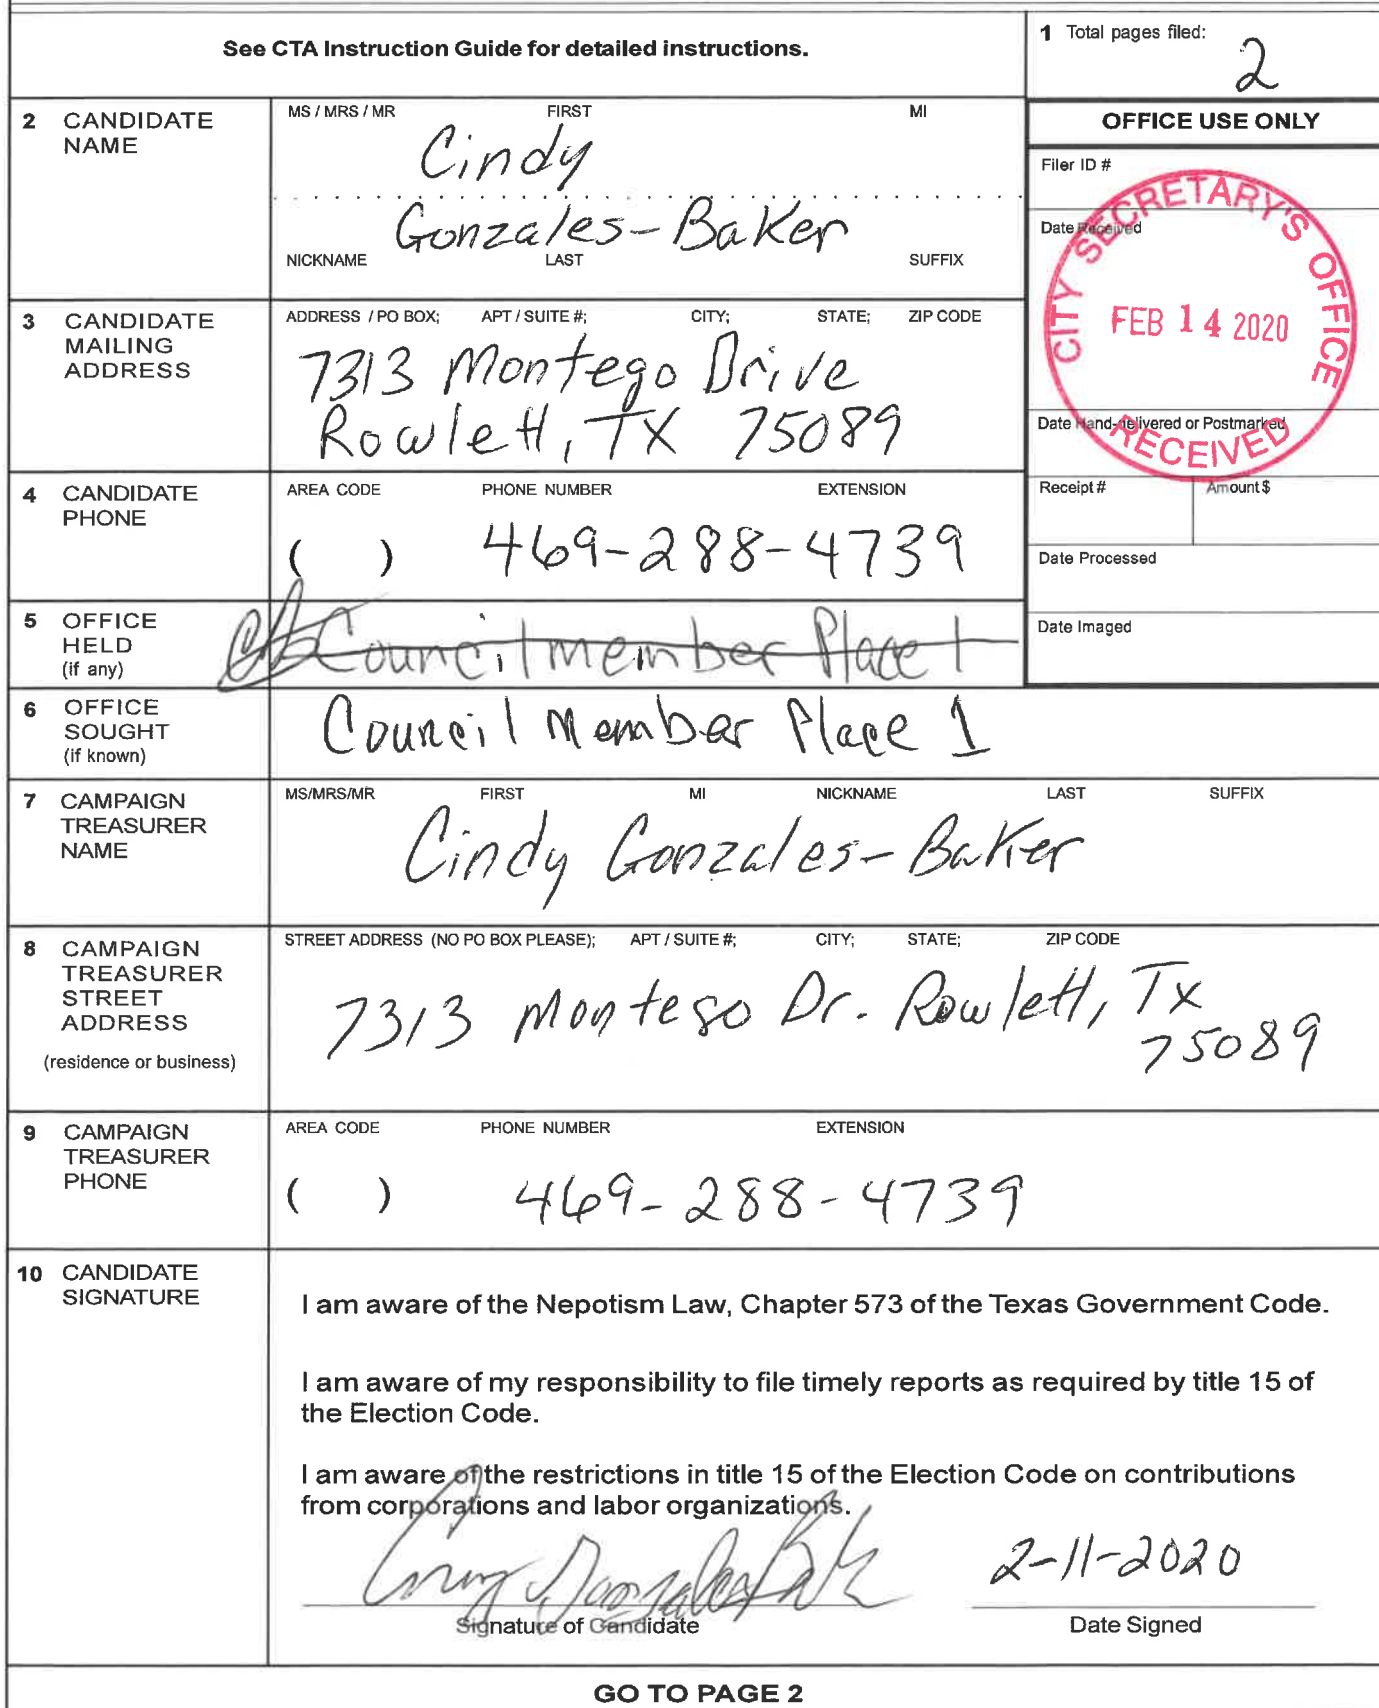 See CTA Instruction Guide for detailed instructions.
1 Total pages filed:
2
2 CANDIDATE NAME
MS / MRS / MR FIRST MI
Cindy
Gonzales-Baker
NICKNAME LAST SUFFIX
OFFICE USE ONLY
Filer ID #
Date Received
CITY SECRETARY'S OFFICE
FEB 14 2020
RECEIVED
Date Hand-delivered or Postmarked
Receipt # Amount $
Date Processed
Date Imaged
3 CANDIDATE MAILING ADDRESS
ADDRESS / PO BOX; APT / SUITE #; CITY; STATE; ZIP CODE
7313 Montego Drive
Rowlett, TX 75089
4 CANDIDATE PHONE
AREA CODE PHONE NUMBER EXTENSION
( ) 469-288-4739
5 OFFICE HELD (if any)
Councilmember Place 1
6 OFFICE SOUGHT (if known)
Council Member Place 1
7 CAMPAIGN TREASURER NAME
MS/MRS/MR FIRST MI NICKNAME LAST SUFFIX
Cindy Gonzales-Baker
8 CAMPAIGN TREASURER STREET ADDRESS
(residence or business)
STREET ADDRESS (NO PO BOX PLEASE); APT / SUITE #; CITY; STATE; ZIP CODE
7313 Montego Dr. Rowlett, Tx
75089
9 CAMPAIGN TREASURER PHONE
AREA CODE PHONE NUMBER EXTENSION
( ) 469-288-4739
10 CANDIDATE SIGNATURE
I am aware of the Nepotism Law, Chapter 573 of the Texas Government Code.
I am aware of my responsibility to file timely reports as required by title 15 of
the Election Code.
I am aware of the restrictions in title 15 of the Election Code on contributions
from corporations and labor organizations.
2-11-2020
Signature of Candidate Date Signed
GO TO PAGE 2